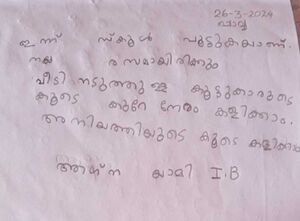 26-3-2024
ചൊവ്വ
ഇന്ന് സ്കൂൾ പൂട്ടുകയാണ്.
നല്ല രസമായിരിക്കും
വീട്ടി നടുത്തുള്ള കൂട്ടുകാരുടെ
കൂടെ കുറേ നേരം കളിക്കാം.
അനിയത്തിയുടെ കൂടെ കളിക്കാം
യാമി I.B